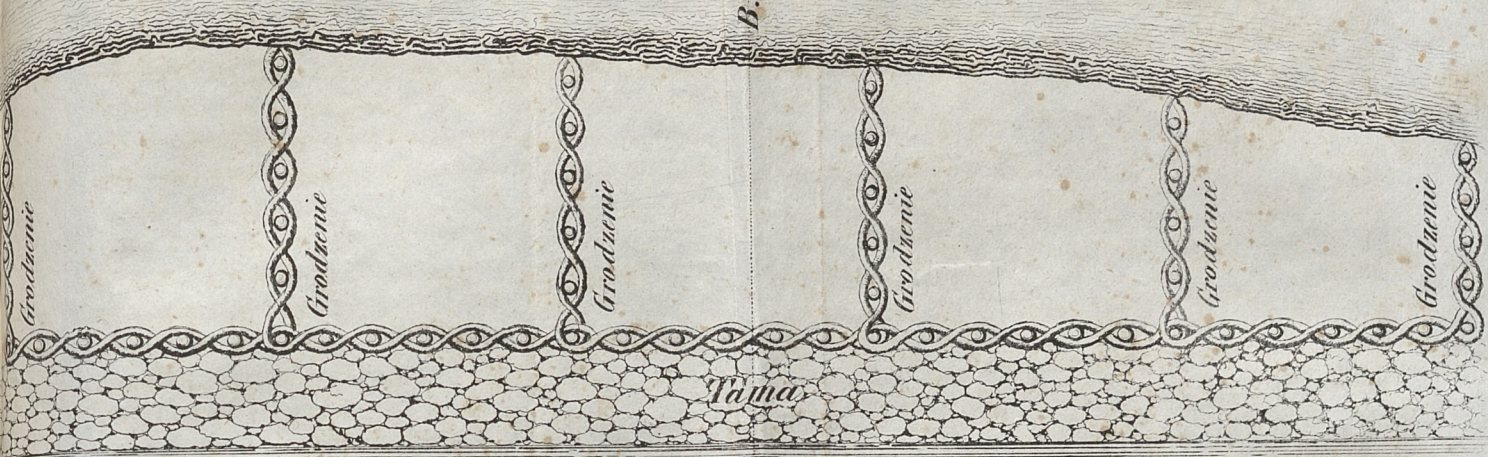 B.
Grodzenie
Grodzenie
Grodzenie
Grodzenie
Grodzenie
Grodzenie
Tama